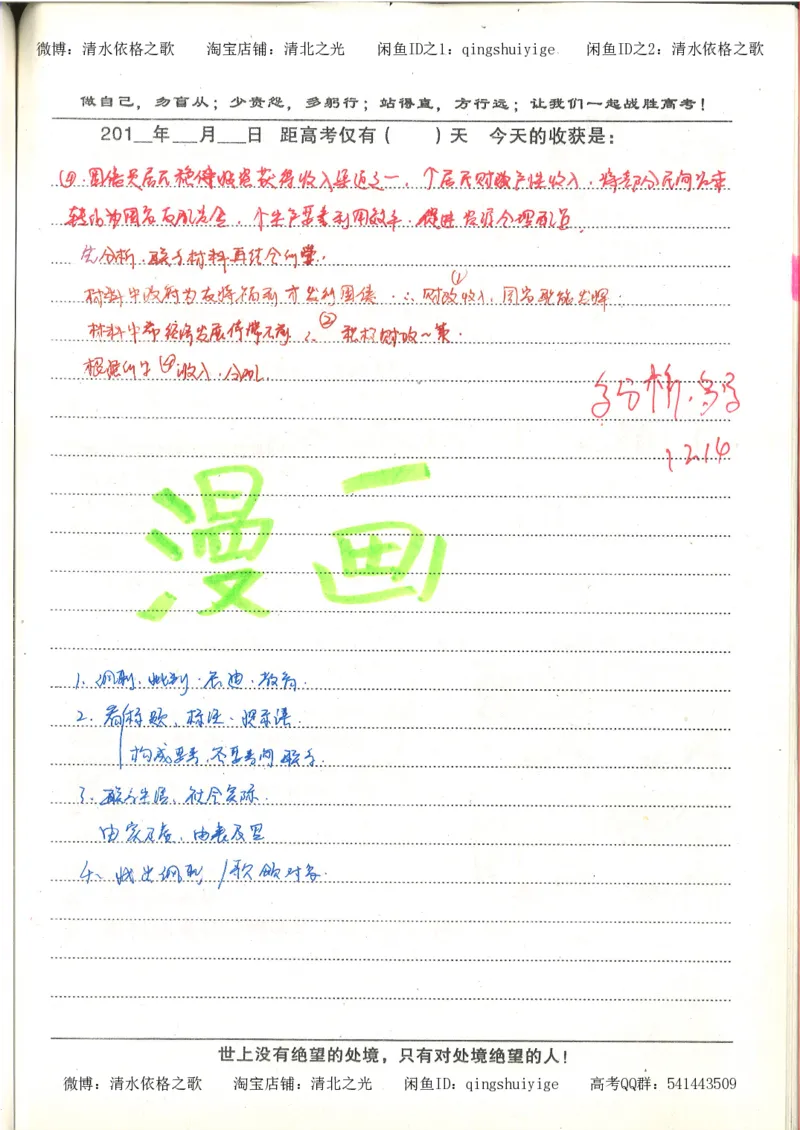 微博：清水依格之歌 淘宝店铺：清北之光 闲鱼ID之1：qingshuiyige 闲鱼ID之2：清水依格之歌
做自己，勿盲从；少责怨，多躬行；站得直，方行远；让我们一起战胜高考！
201__年___月___日 距高考仅有（ ）天 今天的收获是：
④.国债是居民稳健投资获得收入渠道之一，个居民财产性收入，将部分民间资本
转化为国家支配资金，个生产要素利用效率，促进资源合理配置
先分析，联系材料再结合所学.
材料中政府为支持福利 发行国债 ∴①财政收入，国家职能发挥；
材料中希 经济发展停滞不前 ∴②积极财政～策.
根据所学④收入.分配.
多分析.多写
12.14
漫画
1. 讽刺、批判.启迪.教育.
2. 看标题、标注.提示语.
构成要素.不要素间联系.
3. 联系生活、社会实际.
由 及 ，由表及里
4、找出讽刺/歌颂对象.
世上没有绝望的处境，只有对处境绝望的人！
微博：清水依格之歌 淘宝店铺：清北之光 闲鱼ID：qingshuiyige 高考QQ群：541443509